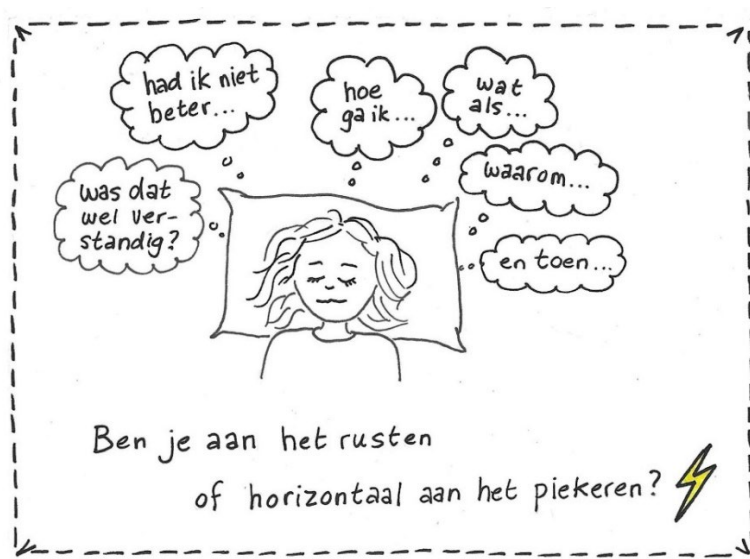 had ik niet
beter...
hoe
ga ik...
wat
als...
was dat
wel ver-
standig?
waarom...
en toen...
Ben je aan het rusten
of horizontaal aan het piekeren?